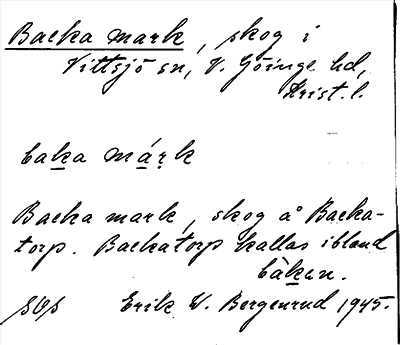 Backa mark, skog i
Vittsjö sn, V. Göinge hd,
Krist. l.
baka márk
Backa mark, skog å Backa-
torp. Backatorp kallas ibland
bàkan.
Erik W. Bergenrud 1945.